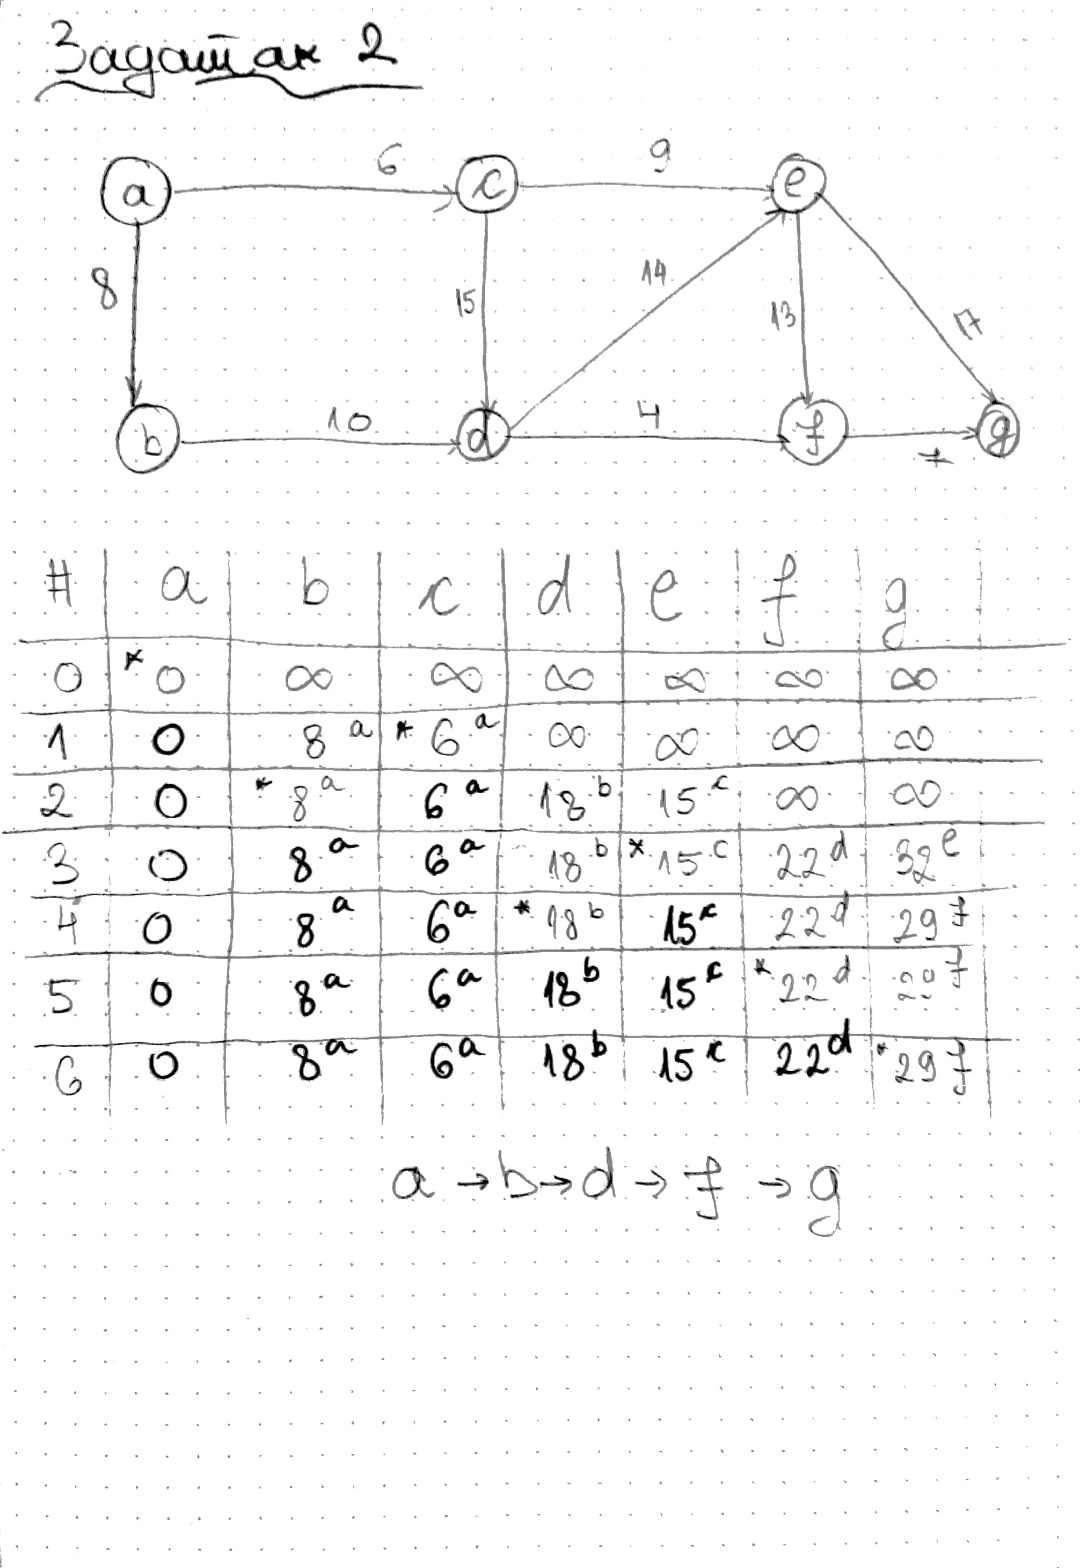 Задатак 2
6 9
a c e
8 15 14 13 17
10 4
b d f g
7
# a b c d e f g
0 *0 ∞ ∞ ∞ ∞ ∞ ∞
1 0 8ᵃ *6ᵃ ∞ ∞ ∞ ∞
2 0 *8ᵃ 6ᵃ 18ᵇ 15ᶜ ∞ ∞
3 0 8ᵃ 6ᵃ 18ᵇ *15ᶜ 22ᵈ 32ᵉ
4 0 8ᵃ 6ᵃ *18ᵇ 15ᶜ 22ᵈ 29ᶠ
5 0 8ᵃ 6ᵃ 18ᵇ 15ᶜ *22ᵈ 29ᶠ
6 0 8ᵃ 6ᵃ 18ᵇ 15ᶜ 22ᵈ *29ᶠ
a → b → d → f → g